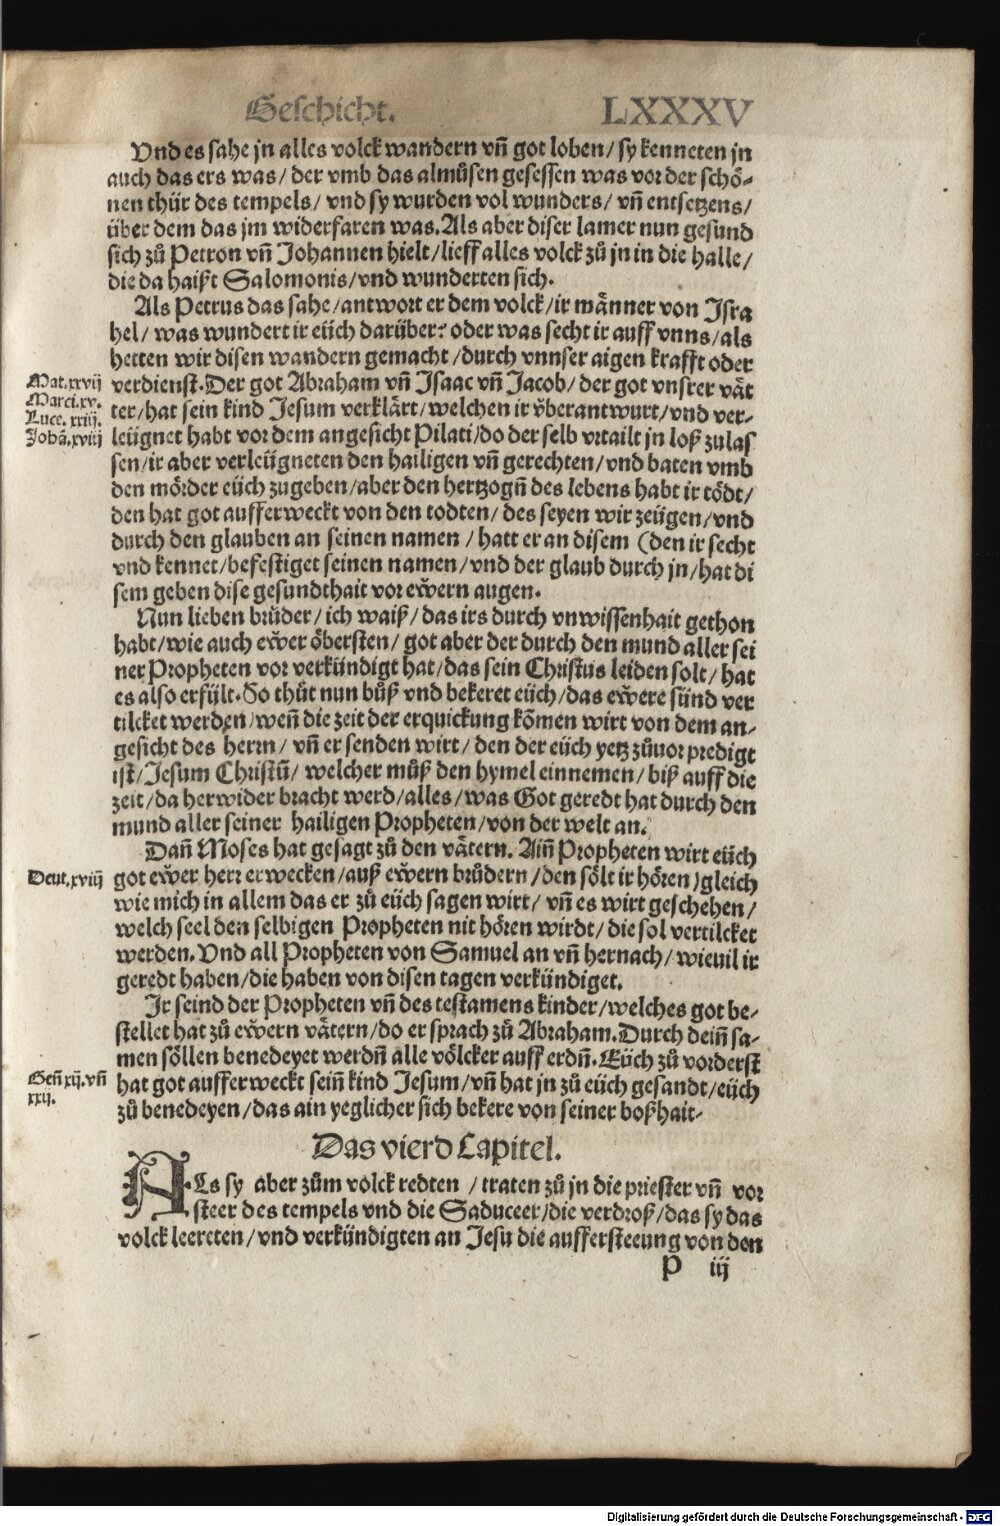 Geschicht. LXXXV
Vnd es sahe jn alles volck wandern vñ got loben/ sy kenneten jn
auch das ers was/ der vmb das almůsen gesessen was vor der schö-
nen thür des tempels/ vnd sy wurden vol wunders/ vñ entsetzens/
über dem das jm widerfaren was. Als aber diser lamer nun gesund
sich zů Petron vñ Johannen hielt/ lieff alles volck zů jn in die halle/
die da haißt Salomonis/ vnd wunderten sich.
Als Petrus das sahe/ antwort er dem volck/ ir männer von Isra
hel/ was wundert ir eüch darüber? oder was secht ir auff vnns/ als
hetten wir disen wandern gemacht/ durch vnnser aigen krafft oder
Mat.xxvij
Marci.xv.
Luce.xxiij.
Johã.xviij
verdienst. Der got Abraham vñ Isaac vñ Jacob/ der got vnsrer vät
ter/ hat sein kind Jesum verklärt/ welchen ir v̈berantwurt/ vnd ver-
leügnet habt vor dem angesicht Pilati/ do der selb vrtailt jn loß zulas
sen/ ir aber verleügneten den hailigen vñ gerechten/ vnd baten vmb
den mörder eüch zugeben/ aber den hertzogñ des lebens habt ir tödt/
den hat got aufferweckt von den todten/ des seyen wir zeügen/ vnd
durch den glauben an seinen namen/ hatt er an disem (den ir secht
vnd kennet/ befestiget seinen namen/ vnd der glaub durch jn/ hat di
sem geben dise gesundthait vor eẅern augen.
Nun lieben brůder/ ich waiß/ das irs durch vnwissenhait gethon
habt/ wie auch eẅer öbersten/ got aber der durch den mund aller sei
ner Propheten vor verkündigt hat/ das sein Christus leiden solt/ hat
es also erfült. So thůt nun bůß vnd bekeret eüch/ das eẅere sünd ver
tilcket werden/ weñ die zeit der erquickung kõmen wirt von dem an-
gesicht des herrn/ vñ er senden wirt/ den der eüch yetz zůuor predigt
ist/ Jesum Christũ/ welcher můß den hymel einnemen/ biß auff die
zeit/ da herwider bracht werd/ alles/ was Got geredt hat durch den
mund aller seiner hailigen Propheten/ von der welt an.
Dañ Moses hat gesagt zů den vätern. Aiñ Propheten wirt eüch
Deut.xviij
got eẅer herr erwecken/ auß eẅern brůdern/ den sölt ir hören) gleich
wie mich in allem das er zů eüch sagen wirt/ vñ es wirt geschehen/
welch seel den selbigen Propheten nit hören wirdt/ die sol vertilcket
werden. Vnd all Propheten von Samuel an vñ hernach/ wieuil ir
geredt haben/ die haben von disen tagen verkündiget.
Ir seind der Propheten vñ des testamens kinder/ welches got be-
stellet hat zů eẅern vätern/ do er sprach zů Abraham. Durch deiñ sa-
men söllen benedeyet werdñ alle völcker auff erdñ. Eüch zů vorderst
Geñ xij. vñ
xxij.
hat got aufferweckt seiñ kind Jesum/ vñ hat jn zů eüch gesandt/ eüch
zů benedeyen/ das ain yeglicher sich bekere von seiner boßhait-
Das vierd Capitel.
ALs sy aber zům volck redten/ traten zů jn die priester vñ vor
steer des tempels vnd die Saduceer/ die verdroß/ das sy das
volck leereten/ vnd verkündigten an Jesu die aufferstee​ung von den
P iij
Digitalisierung gefördert durch die Deutsche Forschungsgemeinschaft - DFG